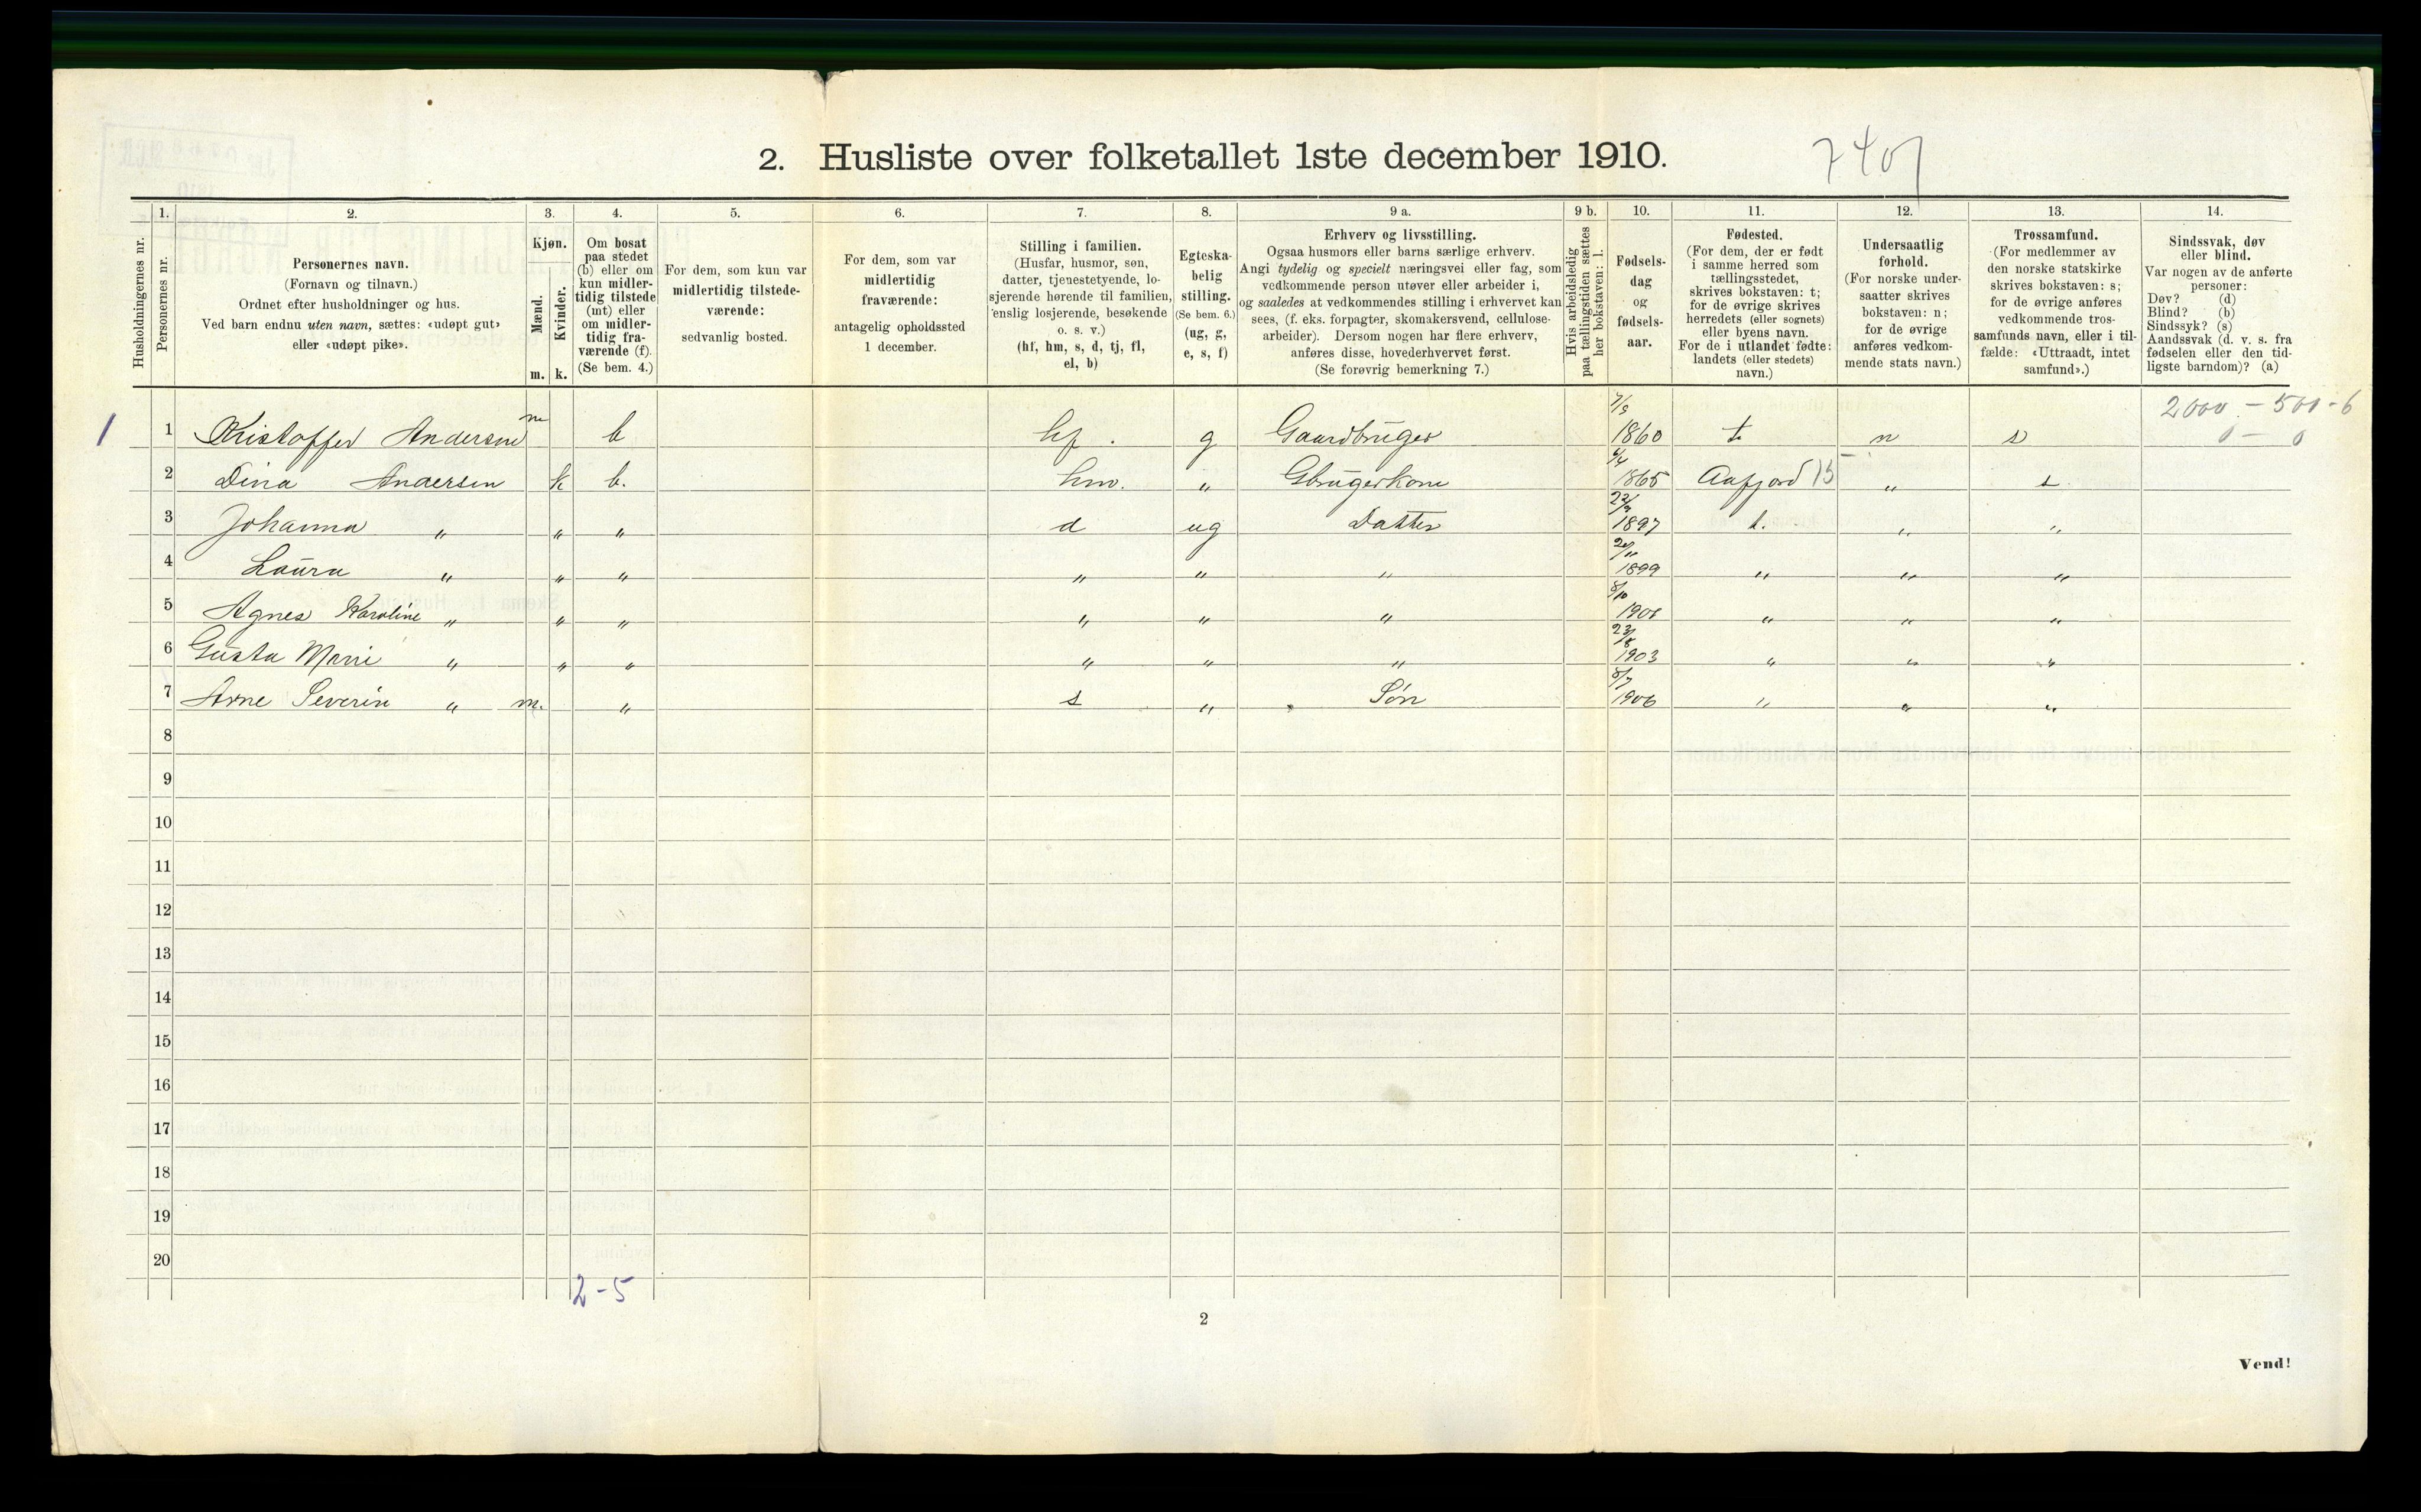 2. Husliste over folketallet 1ste december 1910.
740
1. 2. 3. 4. 5. 6. 7. 8. 9 a. 9 b. 10. 11. 12. 13. 14.
Husholdningernes nr.
Personernes nr.
Personernes navn.
(Fornavn og tilnavn.)
Ordnet efter husholdninger og hus.
Ved barn endnu uten navn, sættes: «udøpt gut»
eller «udøpt pike».
Kjøn.
Mænd.
Kvinder.
m. k.
Om bosat
paa stedet
(b) eller om
kun midler-
tidig tilstede
(mt) eller
om midler-
tidig fra-
værende (f).
(Se bem. 4.)
For dem, som kun var
midlertidig tilstede-
værende:
sedvanlig bosted.
For dem, som var
midlertidig
fraværende:
antagelig opholdssted
1 december.
Stilling i familien.
(Husfar, husmor, søn,
datter, tjenestetyende, lo-
sjerende hørende til familien,
enslig losjerende, besøkende
o. s. v.)
(hf, hm, s, d, tj, fl,
el, b)
Egteska-
belig
stilling.
(Se bem. 6.)
(ug, g,
e, s, f)
Erhverv og livsstilling.
Ogsaa husmors eller barns særlige erhverv.
Angi tydelig og specielt næringsvei eller fag, som
vedkommende person utøver eller arbeider i,
og saaledes at vedkommendes stilling i erhvervet kan
sees, (f. eks. forpagter, skomakersvend, cellulose-
arbeider). Dersom nogen har flere erhverv,
anføres disse, hovederhvervet først.
(Se forøvrig bemerkning 7.)
Hvis arbeidsledig
paa tællingstiden sættes
her bokstaven: l.
Fødsels-
dag
og
fødsels-
aar.
Fødested.
(For dem, der er født
i samme herred som
tællingsstedet,
skrives bokstaven: t;
for de øvrige skrives
herredets (eller sognets)
eller byens navn.
For de i utlandet fødte:
landets (eller stedets)
navn.)
Undersaatlig
forhold.
(For norske under-
saatter skrives
bokstaven: n;
for de øvrige
anføres vedkom-
mende stats navn.)
Trossamfund.
(For medlemmer av
den norske statskirke
skrives bokstaven: s;
for de øvrige anføres
vedkommende tros-
samfunds navn, eller i til-
fælde: «Uttraadt, intet
samfund».)
Sindssvak, døv
eller blind.
Var nogen av de anførte
personer:
Døv? (d)
Blind? (b)
Sindssyk? (s)
Aandssvak (d. v. s. fra
fødselen eller den tid-
ligste barndom)? (a)
2000 - 500 - 6
0 - 0
1 1 Kristoffer Andersen m b hf. g Gaardbruger 1860 t n s
2 Dina Andersen k b. hm. " Gbrugerkone 1865 Aafjord 15 " s
3 Johanna " " " d ug Datter 1897 t. " "
4 Laura " " " " " " 20/11 1899 " " "
5 Agnes Karoline " " " " " " 8/10 1901 " " "
6 Gusta Marie " " " " " " 23/8 1903 " " "
7 Arne Severin " m. " s " Søn 8/7 1906 " " "
8
9
10
11
12
13
14
15
16
17
18
19
20
2-5
2
Vend!